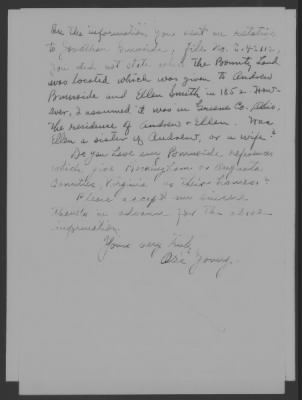 In the information you sent me relative
to Jonathan Burnside, files No.
you did not state where the Bounty Land
was located which was given to Andrew
Burnside and Ellen Smith in 1852. How-
ever, I assumed it was in Greene Co. Ohio,
the residence of Andrew & Ellen. Was
Ellen a sister of Andrew, or a wife?
Do you have any Burnside references
which give Rockingham or Augusta
Counties, Virginia as their homes?
Please accept my sincere
thanks in advance for the above
information.
Yours very truly,
Young.